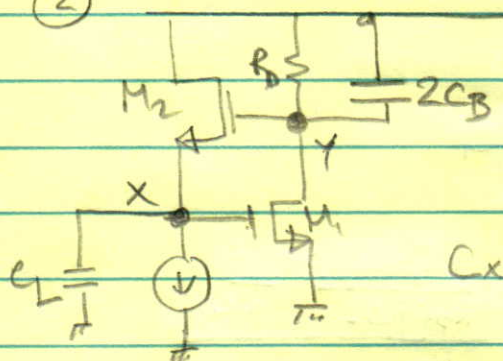 2
R_D
M_2
2C_B
Y
X
M_1
C_L
C_x